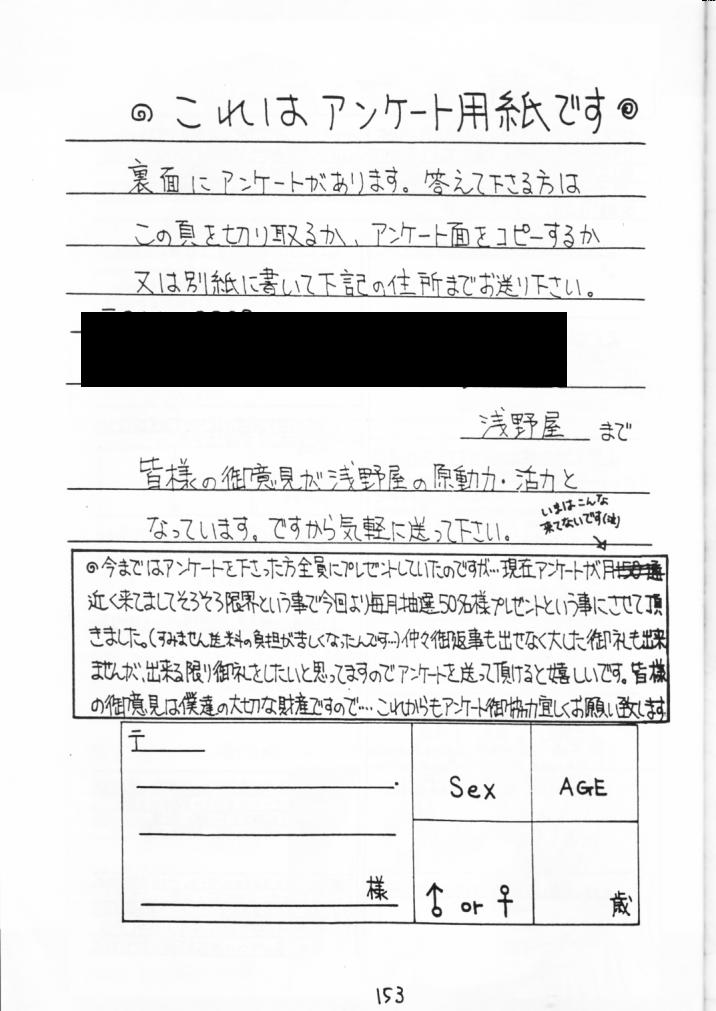 これは アンケート用紙です
裏面にアンケートがあります。答えて下さる方は
この頁を切り取るか、アンケート面をコピーするか
又は別紙に書いて下記の住所までお送り下さい。
浅野屋 まで
皆様の御意見が浅野屋の原動力・活力と
なっています。ですから気軽に送って下さい。
いまはこんな
来てないです(泣)
◎今まではアンケートを下さった方全員にプレゼントしていたのですが…現在アンケートが月150通
近く来てましてそろそろ限界という事で今回より毎月抽選50名様プレゼントという事にさせて頂
きました。(すみません送料の負担が苦しくなったんです…)仲々御返事も出せなく大した御礼も出来
ませんが、出来る限り御礼をしたいと思ってますのでアンケートを送って頂けると嬉しいです。皆様
の御意見は僕達の大切な財産ですので…これからもアンケート御協力宜しくお願い致します
〒
Sex
AGE
様
♂ or ♀
歳
153